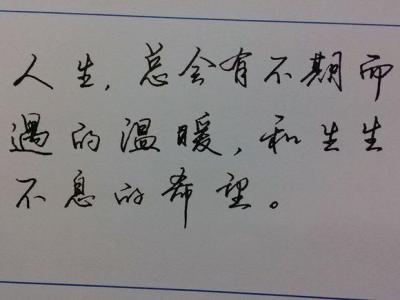 人生,总会有不期而
遇的温暖,和生生
不息的希望。